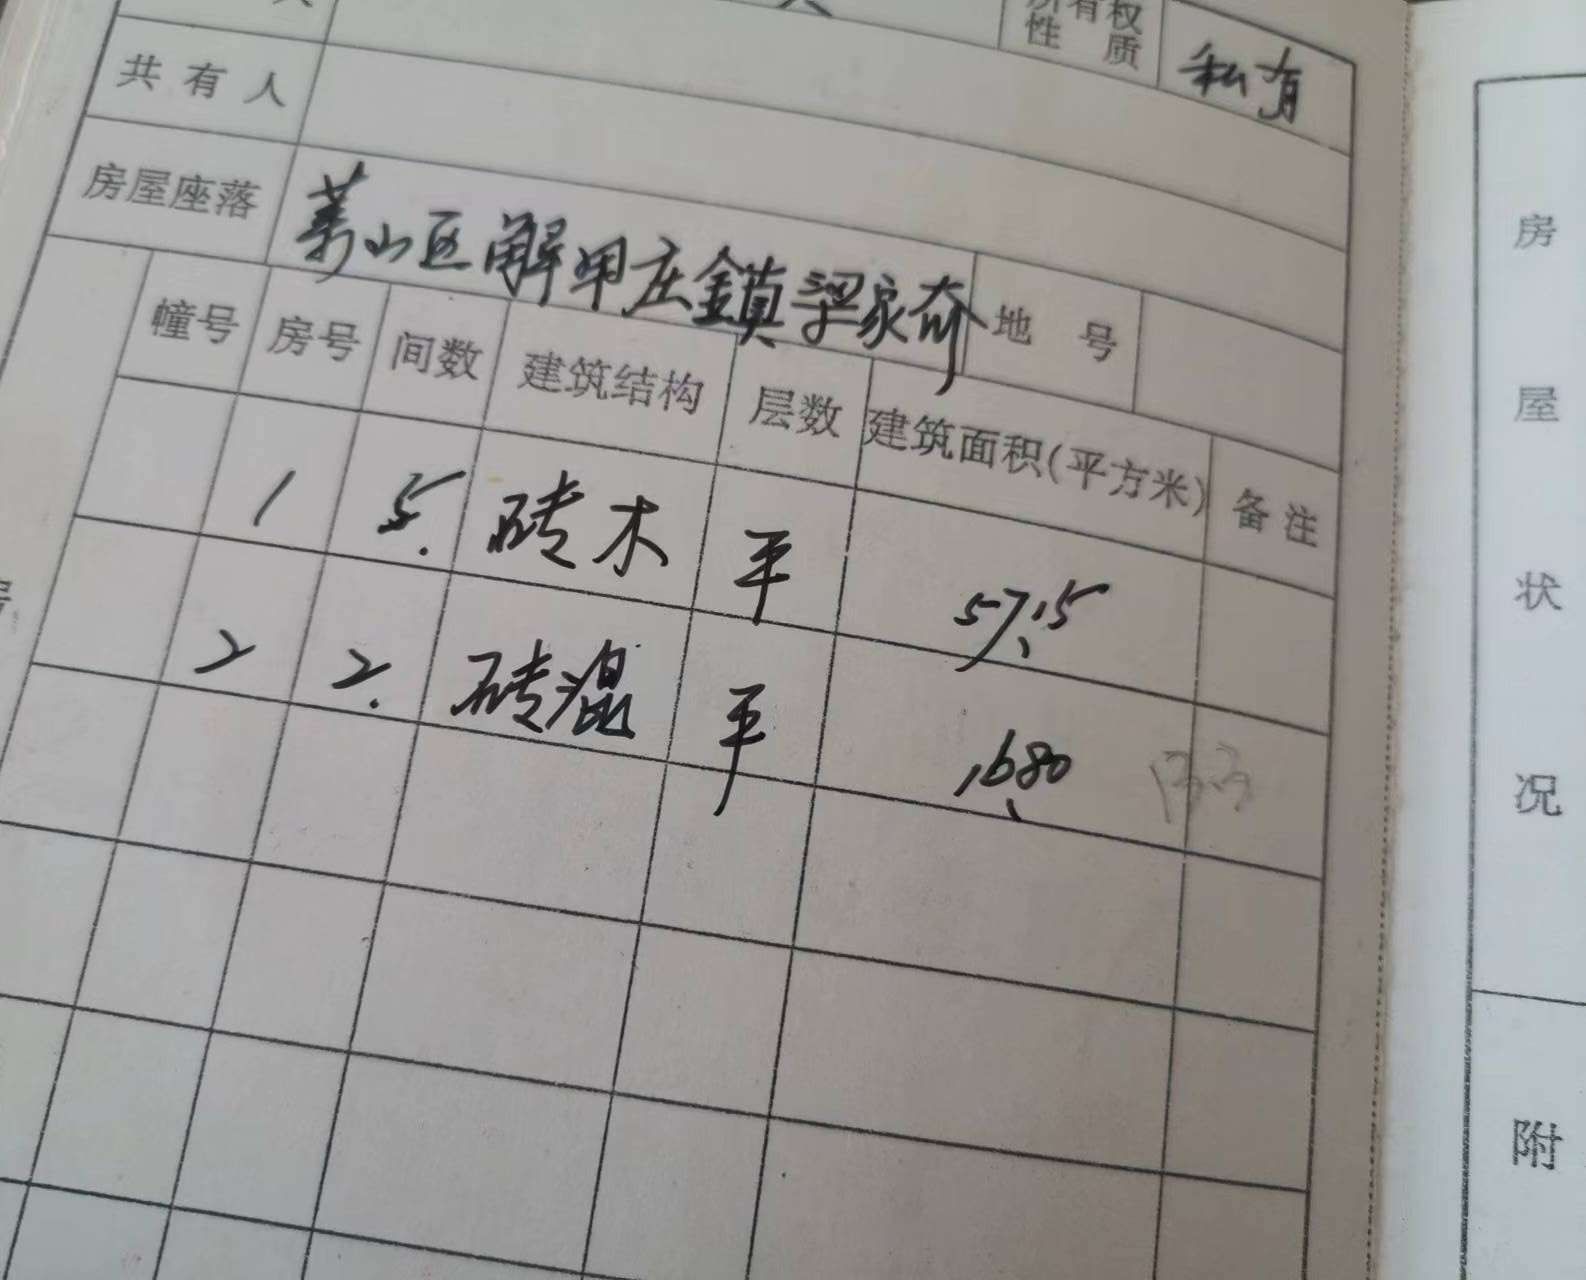 所有权
性 质
私有
共有人
房屋座落
莱山区解甲庄鎮梁家夼
地 号
幢号 房号 间数 建筑结构 层数 建筑面积(平方米) 备注
1 5. 砖木 平 57.15
2 2. 砖混 平 16.80
房
屋
状
况
附